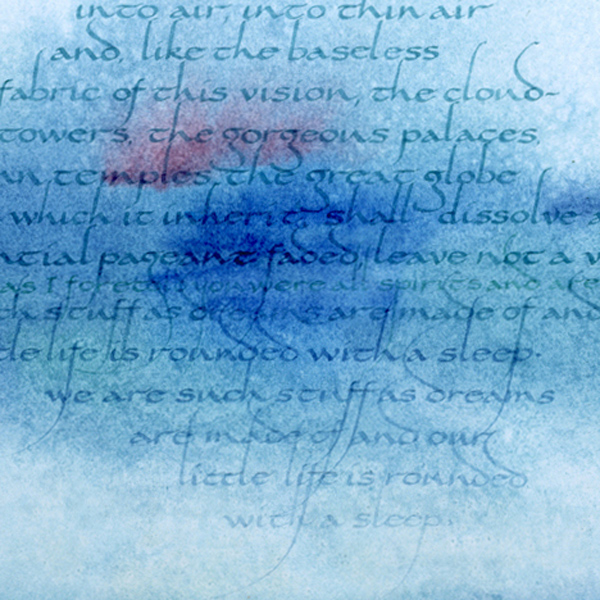 into air, into thin air
and, like the baseless
fabric of this vision, the cloud-
towers, the gorgeous palaces,
temples the great globe
which it inherit, shall dissolve a
ntial pageant faded, leave not a
as I foretold you were all spirits and are
stuff as dreams are made of and
tle life is rounded with a sleep.
we are such stuff as dreams
are made of and our
little life is rounded
with a sleep.